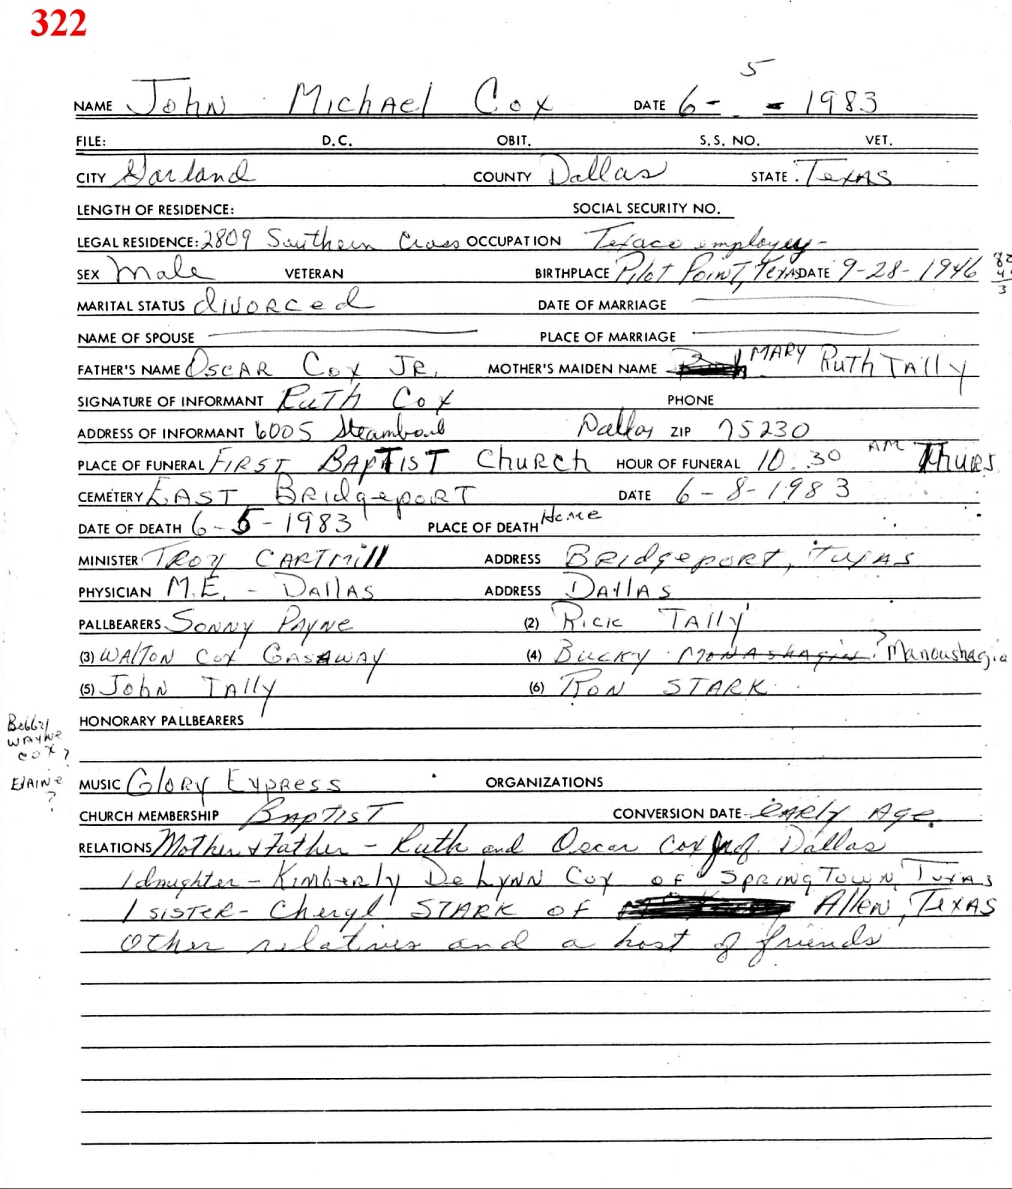 322
NAME John Michael Cox DATE 6-5-1983
FILE: D.C. OBIT. S.S. NO. VET.
CITY Garland COUNTY Dallas STATE Texas
LENGTH OF RESIDENCE: SOCIAL SECURITY NO.
LEGAL RESIDENCE: 2809 Southern Cross OCCUPATION Texaco employey-
SEX Male VETERAN BIRTHPLACE Pilot Point, Texas DATE 9-28-1946
MARITAL STATUS divorced DATE OF MARRIAGE
NAME OF SPOUSE PLACE OF MARRIAGE
FATHER'S NAME Oscar Cox Jr. MOTHER'S MAIDEN NAME MARY Ruth Tally
SIGNATURE OF INFORMANT Ruth Cox PHONE
ADDRESS OF INFORMANT 6005 Steamboat Dallas ZIP 75230
PLACE OF FUNERAL First Baptist Church HOUR OF FUNERAL 10:30 AM Thurs.
CEMETERY East Bridgeport DATE 6-8-1983
DATE OF DEATH 6-5-1983 PLACE OF DEATH Home
MINISTER Troy Cartmill ADDRESS Bridgeport, Texas
PHYSICIAN M.E. - Dallas ADDRESS Dallas
PALLBEARERS Sonny Payne (2) Rick Tally
(3) Walton Cox Gasaway (4) Bucky Monashagin? Manoushagia
(5) John Tally (6) Ron Stark
HONORARY PALLBEARERS
Bobby Wayne Cox?
Elaine?
MUSIC Glory Express ORGANIZATIONS
CHURCH MEMBERSHIP Baptist CONVERSION DATE early Age
RELATIONS Mother & Father - Ruth and Oscar Cox Jr. of Dallas
1 daughter - Kimberly DeLynn Cox of Springtown, Texas
1 sister - Cheryl Stark of Allen, Texas
Other relatives and a host of friends